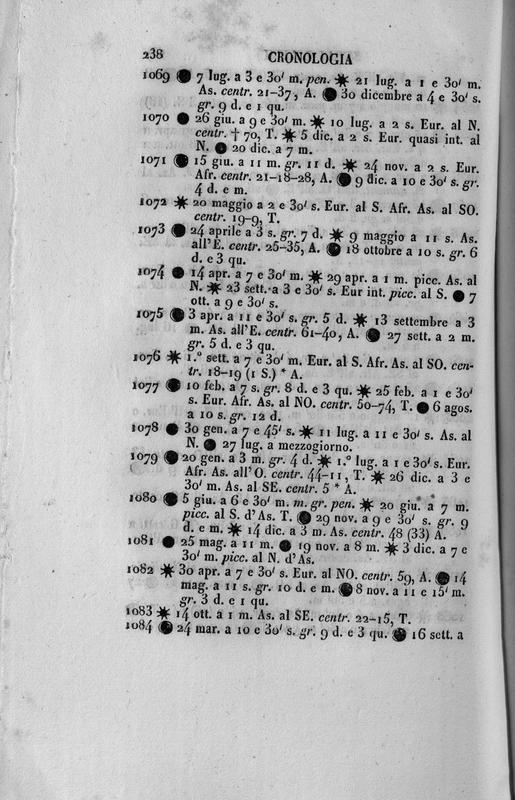 238 CRONOLOGIA
1069 ● 7 lug. a 3 e 30' m. pen. ✷ 21 lug. a 1 e 30' m.
As. centr. 21-37, A. ● 30 dicembre a 4 e 30' s.
gr. 9 d. e 1 qu.
1070 ● 26 giu. a 9 e 30' m. ✷ 10 lug. a 2 s. Eur. al N.
centr. † 70, T. ✷ 5 dic. a 2 s. Eur. quasi int. al
N. ● 20 dic. a 7 m.
1071 ● 15 giu. a 11 m. gr. 11 d. ✷ 24 nov. a 2 s. Eur.
Afr. centr. 21-18-28, A. ● 9 dic. a 10 e 30' s. gr.
4 d. e m.
1072 ✷ 20 maggio a 2 e 30' s. Eur. al S. Afr. As. al SO.
centr. 19-9, T.
1073 ● 24 aprile a 3 s. gr. 7 d. ✷ 9 maggio a 11 s. As.
all'E. centr. 25-35, A. ● 18 ottobre a 10 s. gr. 6
d. e 3 qu.
1074 ● 14 apr. a 7 e 30' m. ✷ 29 apr. a 1 m. picc. As. al
N. ✷ 23 sett. a 3 e 30' s. Eur int. picc. al S. ● 7
ott. a 9 e 30' s.
1075 ● 3 apr. a 11 e 30' s. gr. 5 d. ✷ 13 settembre a 3
m. As. all'E. centr. 61-40, A. ● 27 sett. a 2 m.
gr. 5 d. e 3 qu.
1076 ✷ 1.° sett. a 7 e 30' m. Eur. al S. Afr. As. al SO. cen-
tr. 18-19 (1 S.) * A.
1077 ● 10 feb. a 7 s. gr. 8 d. e 3 qu. ✷ 25 feb. a 1 e 30'
s. Eur. Afr. As. al NO. centr. 50-74, T. ● 6 agos.
a 10 s. gr. 12 d.
1078 ● 30 gen. a 7 e 45' s. ✷ 11 lug. a 11 e 30' s. As. al
N. ● 27 lug. a mezzogiorno.
1079 ● 20 gen. a 3 m. gr. 4 d. ✷ 1.° lug. a 1 e 30' s. Eur.
Afr. As. all'O. centr. 44-11, T. ✷ 26 dic. a 3 e
30' m. As. al SE. centr. 5 * A.
1080 ● 5 giu. a 6 e 30' m. m. gr. pen. ✷ 20 giu. a 7 m.
picc. al S. d'As. T. ● 29 nov. a 9 e 30' s. gr. 9
d. e m. ✷ 14 dic. a 3 m. As. centr. 48 (33) A.
1081 ● 25 mag. a 11 m. ● 19 nov. a 8 m. ✷ 3 dic. a 7 e
30' m. picc. al N. d'As.
1082 ✷ 30 apr. a 7 e 30' s. Eur. al NO. centr. 59, A. ● 14
mag. a 11 s. gr. 10 d. e m. ● 8 nov. a 11 e 15' m.
gr. 3 d. e 1 qu.
1083 ✷ 14 ott. a 1 m. As. al SE. centr. 22-15, T.
1084 ● 24 mar. a 10 e 30' s. gr. 9 d. e 3 qu. ● 16 sett. a